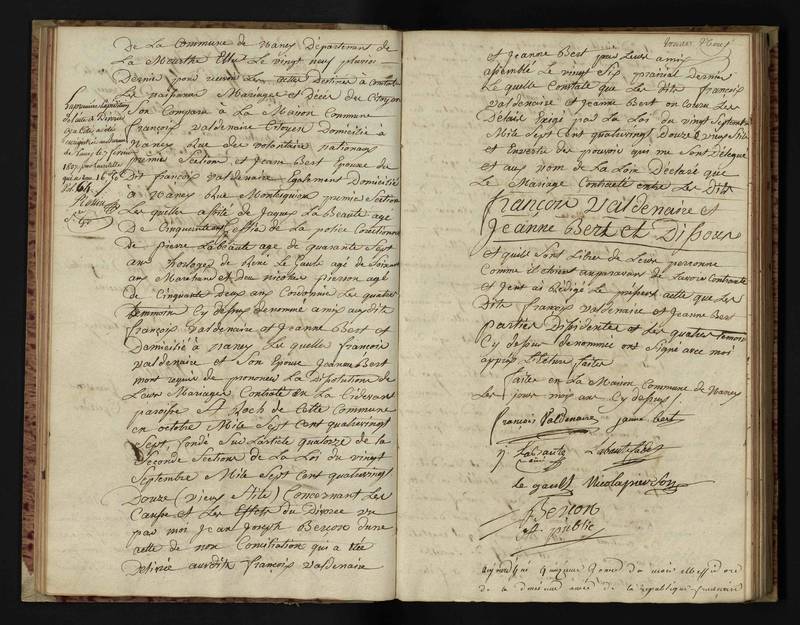 De La Commune de Nancy Département de
La Meurthe Elle Le vingt neuf pluvios
Dernie pour recevoir Les actes Destines a Constater
Le naissance Mariages et Décès des Citoyens
Son Comparu à La Maison Commune
françois valdenaire Citoyen Domicilié à
Nancy Rue des volontaire nationaux
premier Section et Jeann Bert Epouse du
Dit françois valdenaire Egalement Domicilié
à Nancy Rue Montesquieu premier Section
Les quelles assisté de Jaques La Beauté agé
De Cinquante ans office de la police Correctionnel
De pierre Labauté age de quarante Sept
ans horloger de René Le Gault agé de Soixante
ans Marchand et de nicolas pierson agé
de Cinquante Deux ans Cordonnier Les quatre
temmoin Cy dessus denommé amis aux dits
françois valdenaire et Jeanne Bert et
Domicilié à nancy Les quelle francois
valdenaire et Son Epouse Jeanne Bert
mont requis de prononcer La Dissolutions de
Leurs Mariages Contracté en La Cidevant
paroisse St Roch de Cette Commune
en octobre Mile Sept Cent quatrevingt
Sept, fondé Sur L'article quatorze de la
Seconde Sections de La Loi du vingt
Septembre Mile Sept Cent quatrevingt
Douze (vieux Stile) Concernant Les
Causes et Les Effets du Divorce vu
par moi Jean Joseph Besson d'une
acte de non Conciliation qui a Etée
Délivrée auxdits François Valdenaire
La premiere Expedition
de l'acte de Divorce
64
et Jeanne Bert pour Leurs amis
assemblé Le vingt Six prairial dernier
Le quelle Constate que Les dits françois
valdenaire et Jeanne Bert on Couru Les
Délais Exigé par La Loi du vingt Septembre
Mile Sept Cent quatrevingt Douze vieux Stile
et Envertu des pouvoir qui me Sont Délégué
et aux nom de La Loix Déclare que
Le Mariage Contracté entre Les Dits
françois Valdenaire et
Jeanne Bert et Dissous
et quils Sont Libres de Leurs personne
Comme ils étoient auparavant de Lavoir Contracté
et Jent ais Rédigé Le présent acte que Les
Dits françois valdenaire et Jeanne Bert
parties Dissidentes et Les quatres temoins
Cy dessus denommée ont Signé avec moi
apprès Lecture faites
faites en La Maison Commune de Nancy
Les jour mois ans Cy dessus /.
françois Valdenaire jeanne bert
Labauté
le gault Nicolas pierson
Besson
of. public
aujourd'hui
de la république française